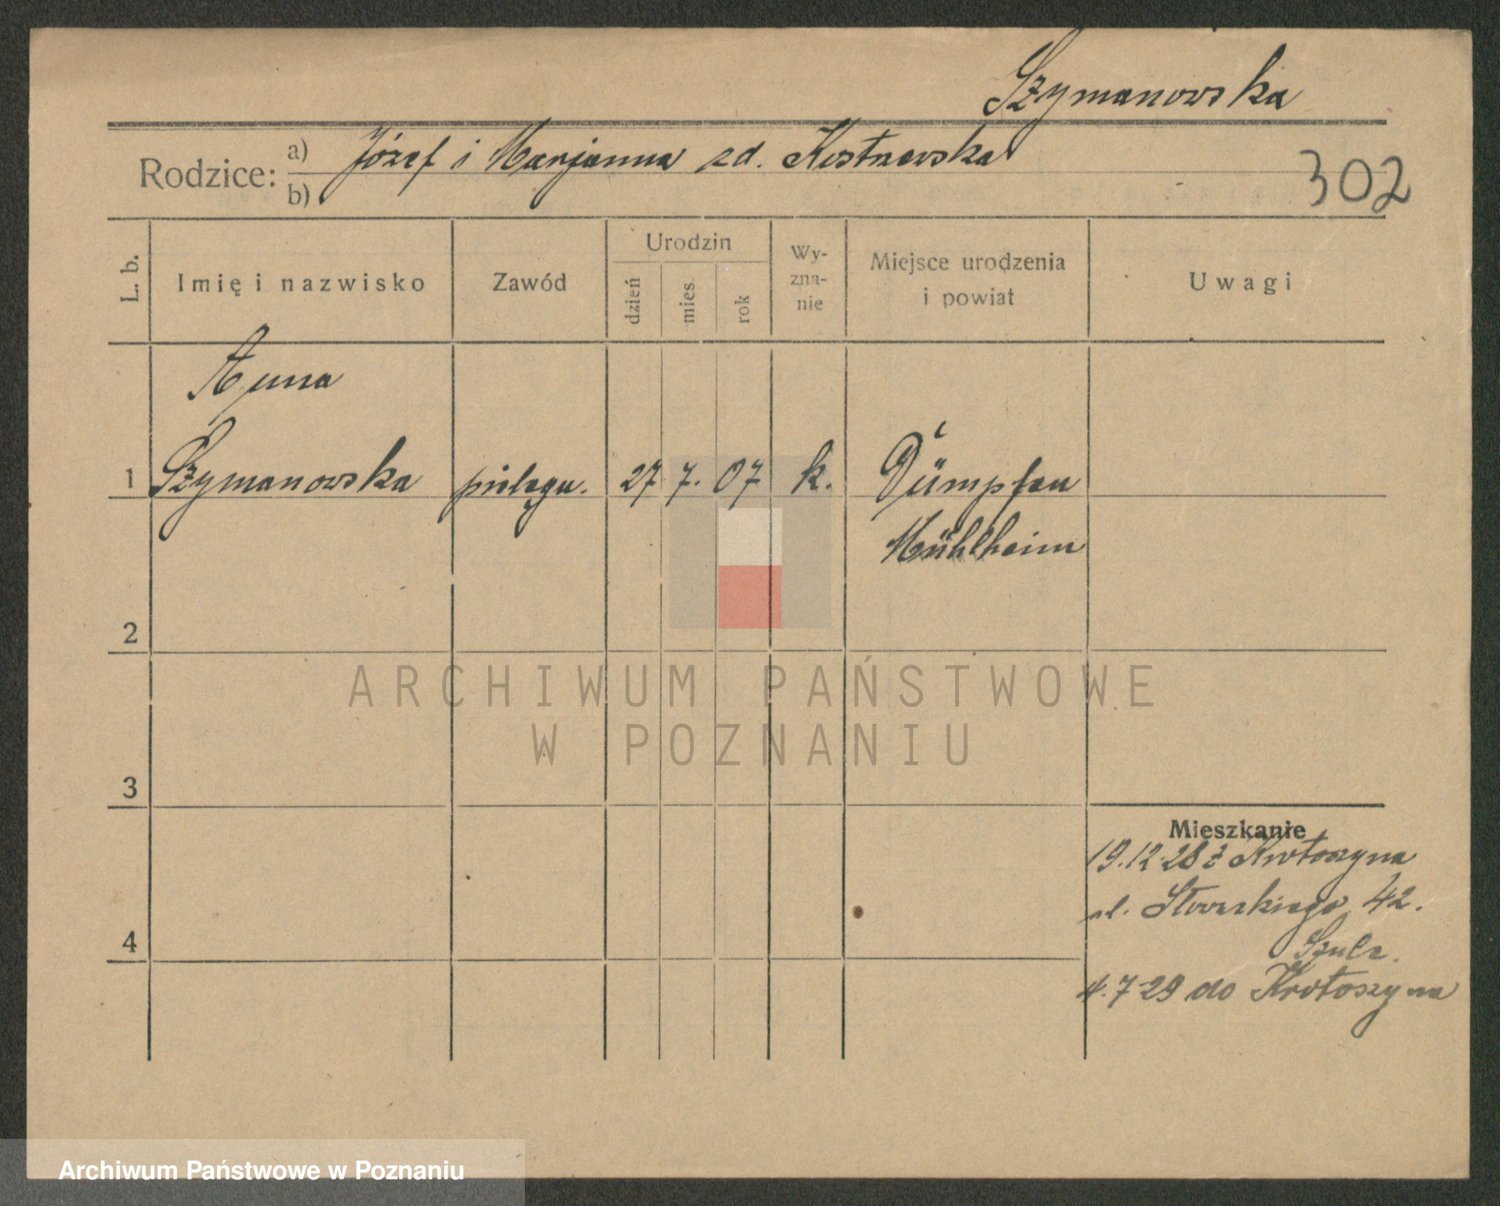 Szymanowska
Rodzice: a) Józef i Marjanna zd.
b)
302
L. b.
Imię i nazwisko
Zawód
Urodzin
dzień
mies.
rok
Wy-
zna-
nie
Miejsce urodzenia
i powiat
Uwagi
Anna
1 Szymanowska pielęgn. 27 7. 07 k. Dümpten
Mühlheim
2
ARCHIWUM PAŃSTWOWE
W POZNANIU
3
Mieszkanie
19.12.28 z Krotoszyna
ul. Słowackiego 42.
Szulc.
4
4.7.29 do Krotoszyna
Archiwum Państwowe w Poznaniu